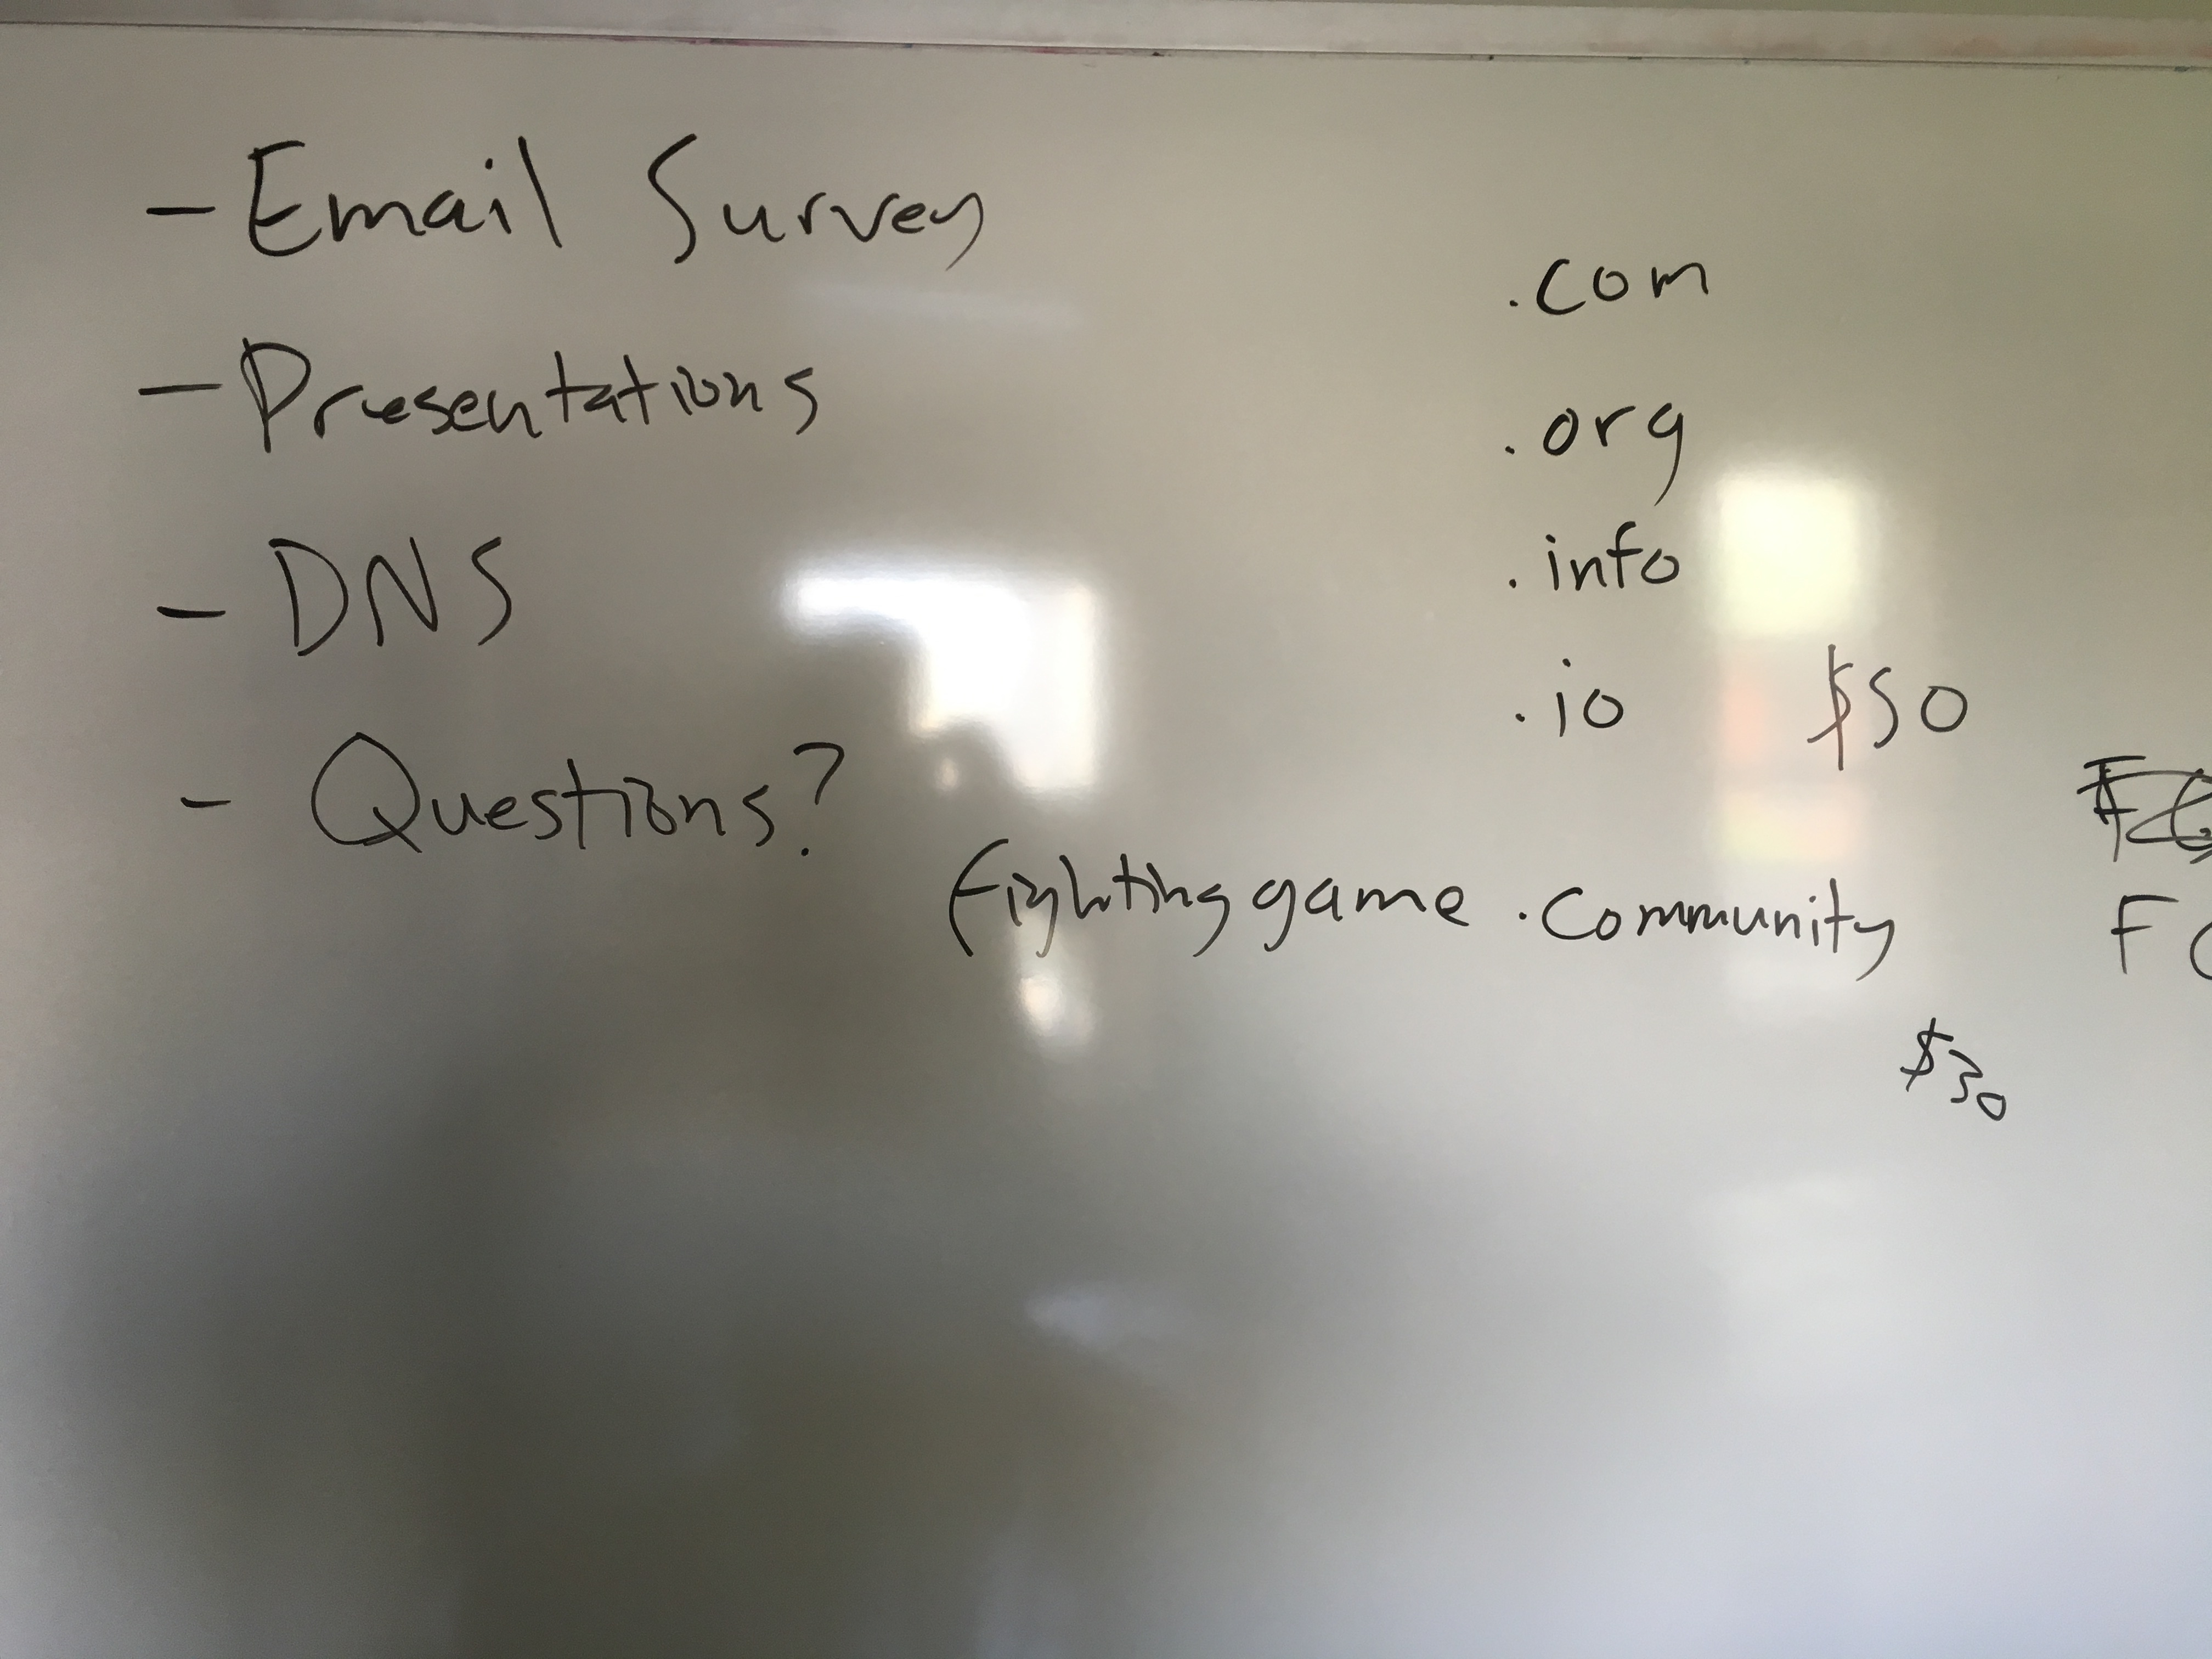 - Email Survey
- Presentations
- DNS
- Questions?
.com
.org
.info
.io $50
fightinggame.community
F
$30